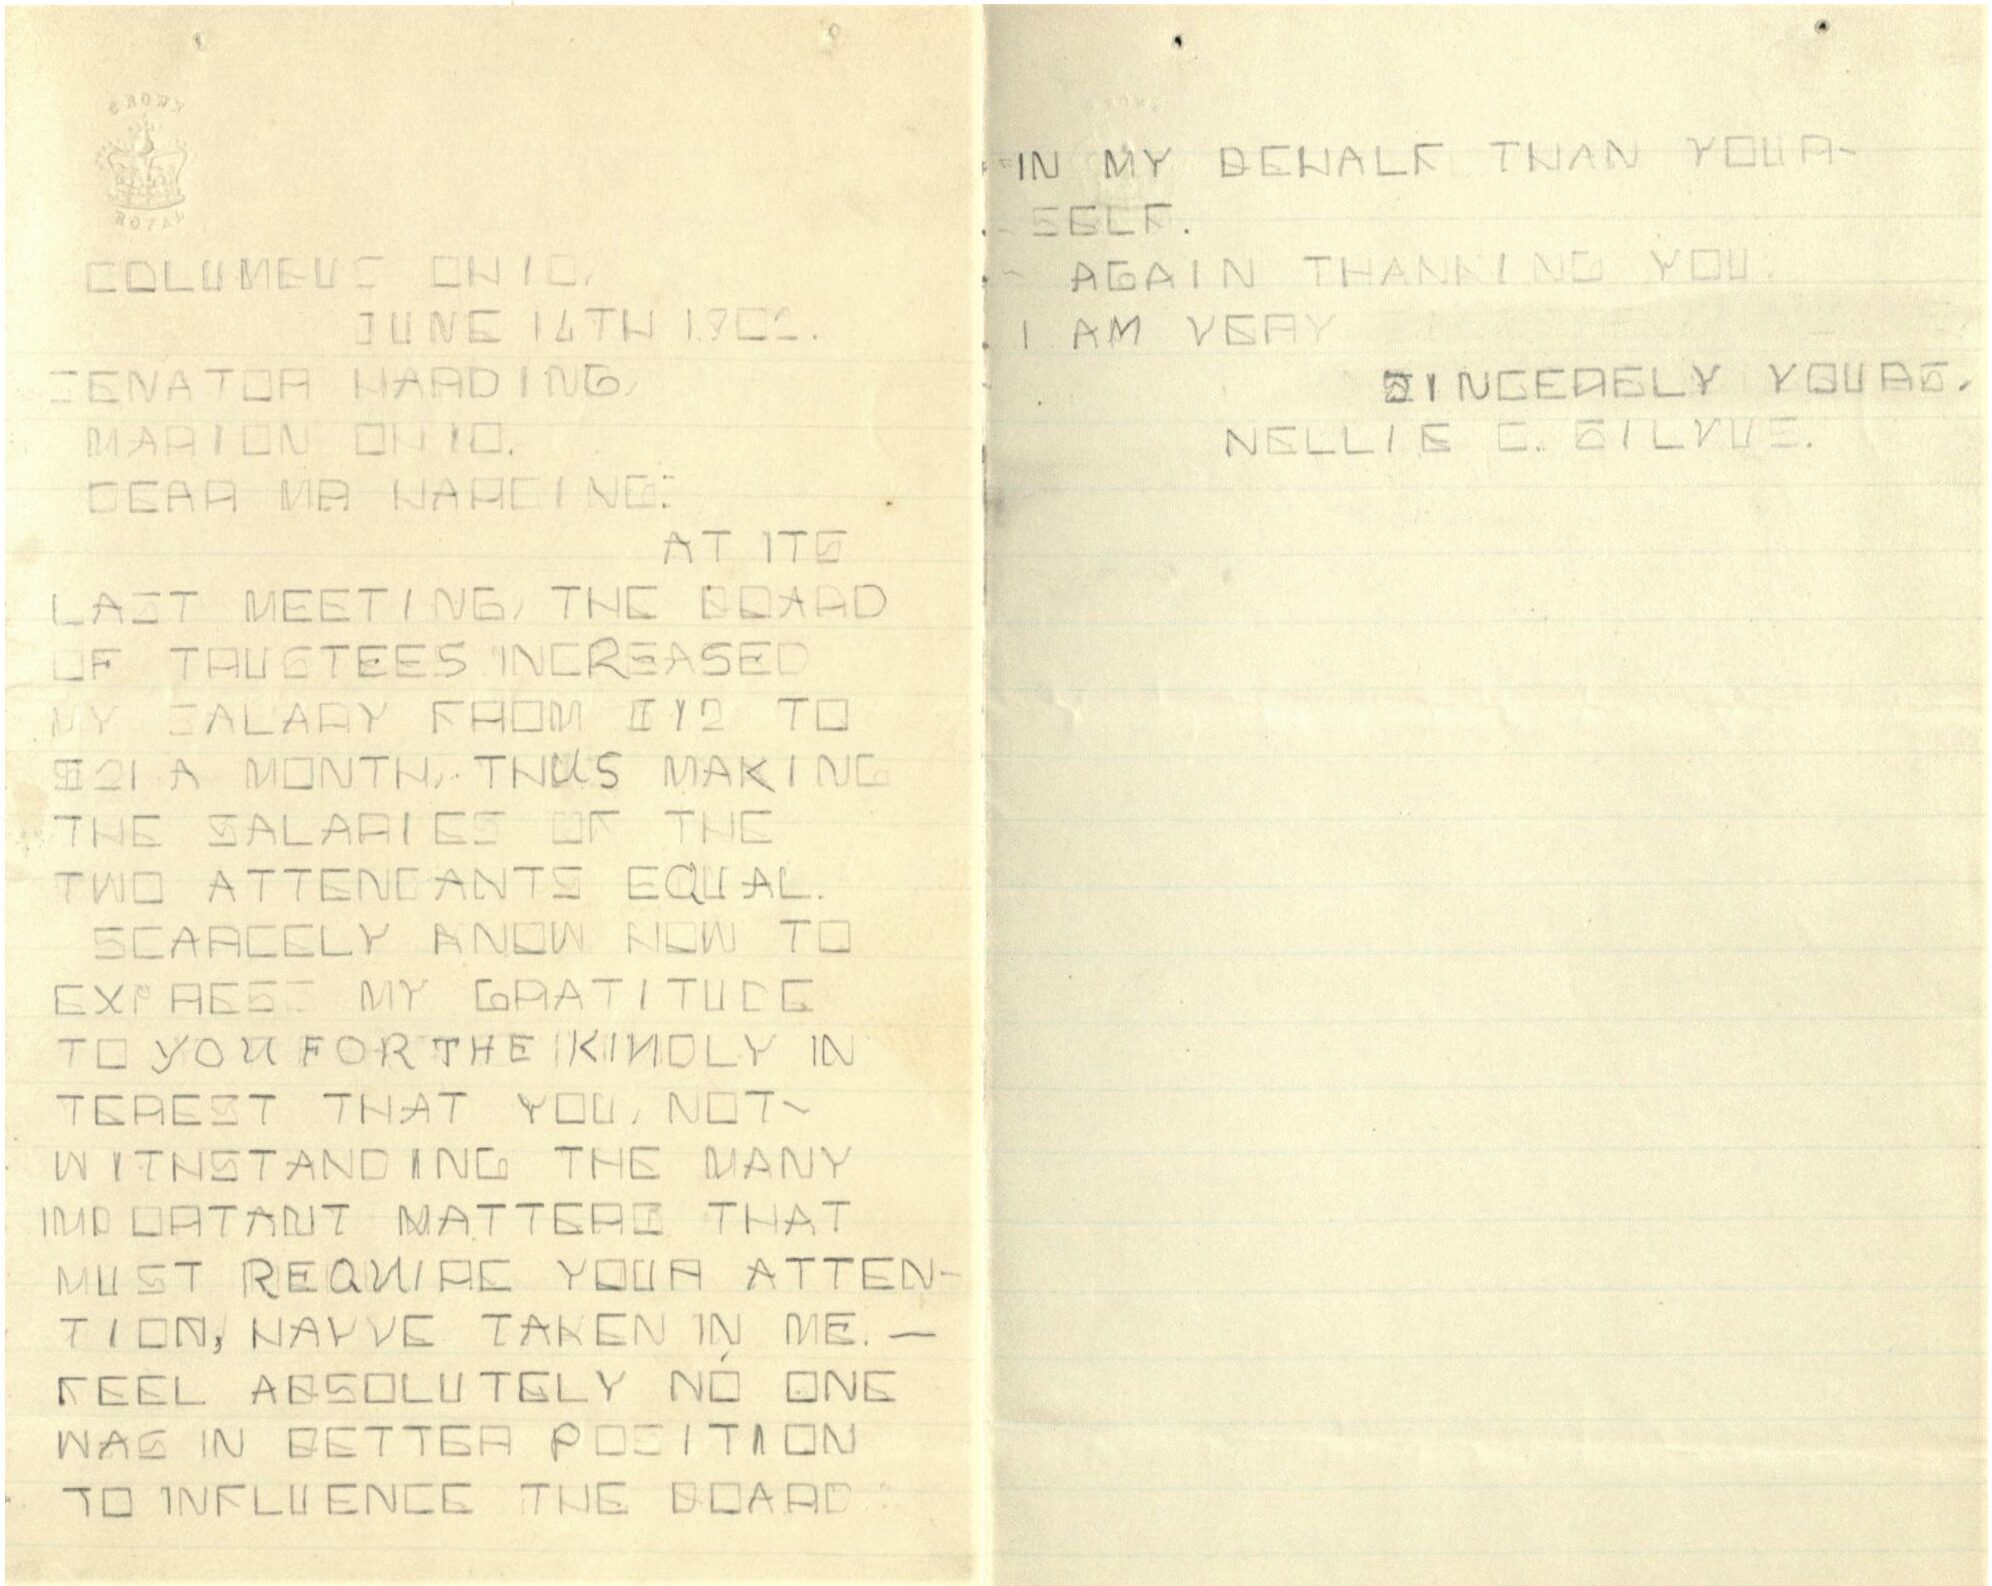 CROWN
ROYAL
COLUMBUS OHIO,
JUNE 14TH
SENATOR HARDING,
MARION OHIO.
DEAR MR HARDING:
AT ITS
LAST MEETING, THE BOARD
OF TRUSTEES INCREASED
MY SALARY FROM $12 TO
$21 A MONTH, THUS MAKING
THE SALARIES OF THE
TWO ATTENDANTS EQUAL.
SCARCELY KNOW HOW TO
EXPRESS MY GRATITUDE
TO YOU FOR THE KINDLY IN
TEREST THAT YOU, NOT-
WITHSTANDING THE MANY
IMPORTANT MATTERS THAT
MUST REQUIRE YOUR ATTEN-
TION, HAVVE TAKEN IN ME. —
FEEL ABSOLUTELY NO ONE
WAS IN BETTER POSITION
TO INFLUENCE THE BOARD
IN MY BEHALF THAN YOUR-
SELF.
AGAIN THANKING YOU.
I AM VERY
SINCERELY YOURS,
NELLIE C. SILVUS.